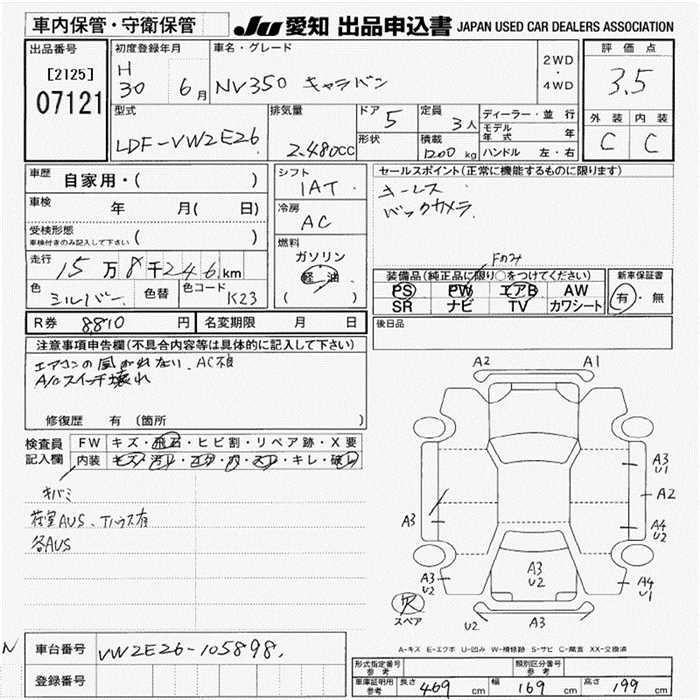 車内保管・守衛保管
JU 愛知 出品申込書 JAPAN USED CAR DEALERS ASSOCIATION
出品番号
[2125]
07121
初度登録年月
H
30 6月
車名・グレード
NV350 キャラバン
2WD
・
4WD
評価点
3.5
外装 内装
C C
型式
LDF-VW2E26
排気量
2.480cc
ドア 5
形状
定員 3人
積載 1200kg
ディーラー・並行
モデル年式 年
ハンドル 左・右
車歴 自家用・( )
車検 年 月( 日)
受検形態
車検付きのみ記入して下さい ( )
走行 15万8千246km
色 シルバー 色替 色コード K23
シフト
IAT
冷房
AC
燃料
ガソリン
軽油
( )
セールスポイント(正常に機能するものに限ります)
キーレス
バックカメラ
Fのみ
装備品(純正品に限り○をつけてください)
PS PW エアB AW
SR ナビ TV カワシート
新車保証書
有・無
R券 8,810円
名変期限 月 日
後日品
注意事項申告欄(不具合内容等は具体的に記入して下さい)
エアコンの風がれない、AC不良
A/Cスイッチ壊れ
修復歴 有 (箇所 )
検査員記入欄
FW キズ・飛石・ヒビ割・リペア跡・X要
内装 キズ・汚レ・コゲ・穴・スレ・キレ・破レ
キバミ
荷室AUS、Tハウス有
各AUS
A2 A1
A3
U1
A2
A3
A4
U2
A3
U2
A3
U2
A4
U1
欠
スペア
U2 A3
A-キズ E-エクボ U-凹み W-補修跡 S-サビ C-腐食 XX-交換済
N
車台番号 VW2E26-105898
登録番号
形式指定番号 参考
類別区分番号 参考
車庫証明用 参考 長さ 469cm 幅 169cm 高さ 199cm